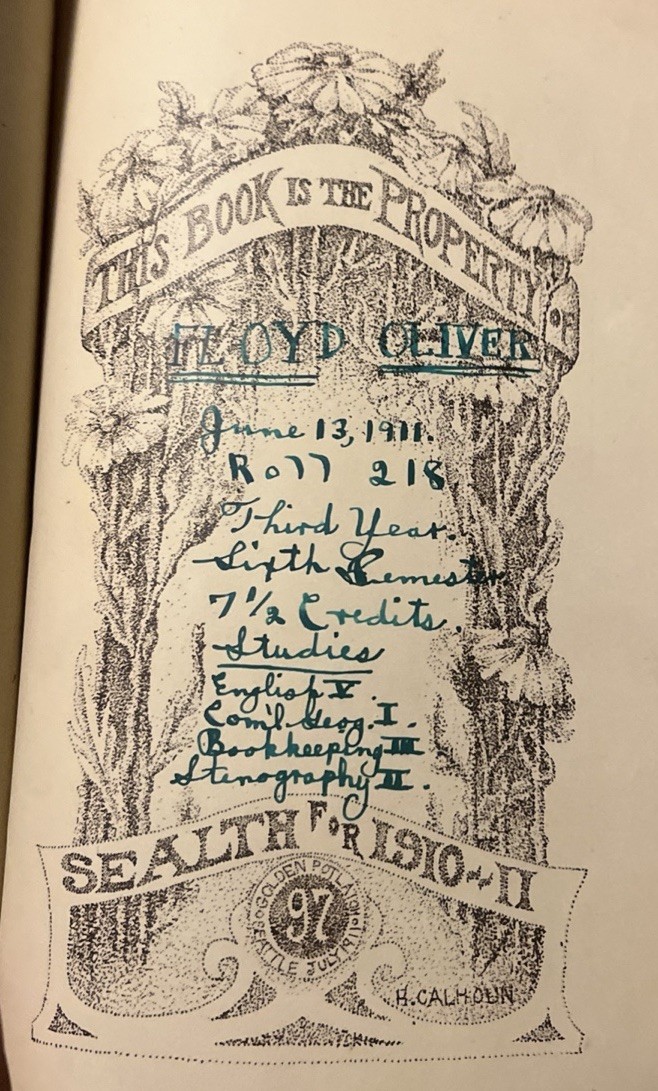 THIS BOOK IS THE PROPERTY OF
FLOYD OLIVER
June 13, 1911.
Roll 218
Third Year.
Sixth Semester.
7 1/2 Credits.
Studies
English V.
Com'l Geog. I.
Bookkeeping III
Stenography II.
SEALTH FOR 1910-11
GOLDEN POTLATCH
97
SEATTLE JULY 1911
H. CALHOUN